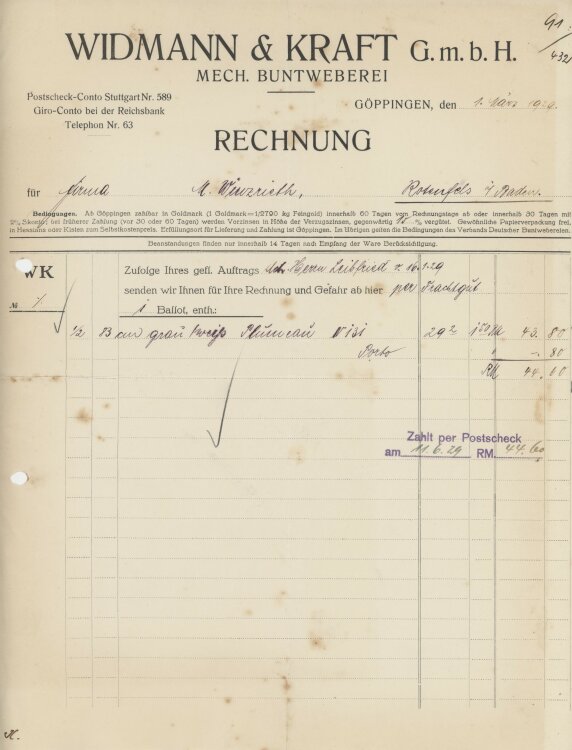 91.
432
WIDMANN & KRAFT G.m.b.H.
MECH. BUNTWEBEREI
Postscheck-Conto Stuttgart Nr. 589
Giro-Conto bei der Reichsbank
Telephon Nr. 63
GÖPPINGEN, den 1. März 1929.
RECHNUNG
für Firma M. Winzrieth, Rotenfels i/ Baden.
Bedingungen. Ab Göppingen zahlbar in Goldmark (1 Goldmark=1/2790 kg Feingold) innerhalb 60 Tagen vom Rechnungstage ab oder innerhalb 30 Tagen mit
2% Skonto, bei früherer Zahlung (vor 30 oder 60 Tagen) werden Vorzinsen in Höhe der Verzugszinsen, gegenwärtig % vergütet. Gewöhnliche Papierverpackung frei,
in Hessians oder Kisten zum Selbstkostenpreis. Erfüllungsort für Lieferung und Zahlung ist Göppingen. Im Übrigen gelten die Bedingungen des Verbands Deutscher Buntwebereien.
Beanstandungen finden nur innerhalb 14 Tagen nach Empfang der Ware Berücksichtigung.
WK
Zufolge Ihres gefl. Auftrags Herrn Leibfried v. 16.1.29
senden wir Ihnen für Ihre Rechnung und Gefahr ab hier per Frachtgut
№ 7.
1 Ballot, enth.:
1/2 83 cm grau weiß Plumeau Visi 29² 150 43.80
Porto -.80
RM 44.60
Zahlt per Postscheck
am 11.6.29 RM. 44.60